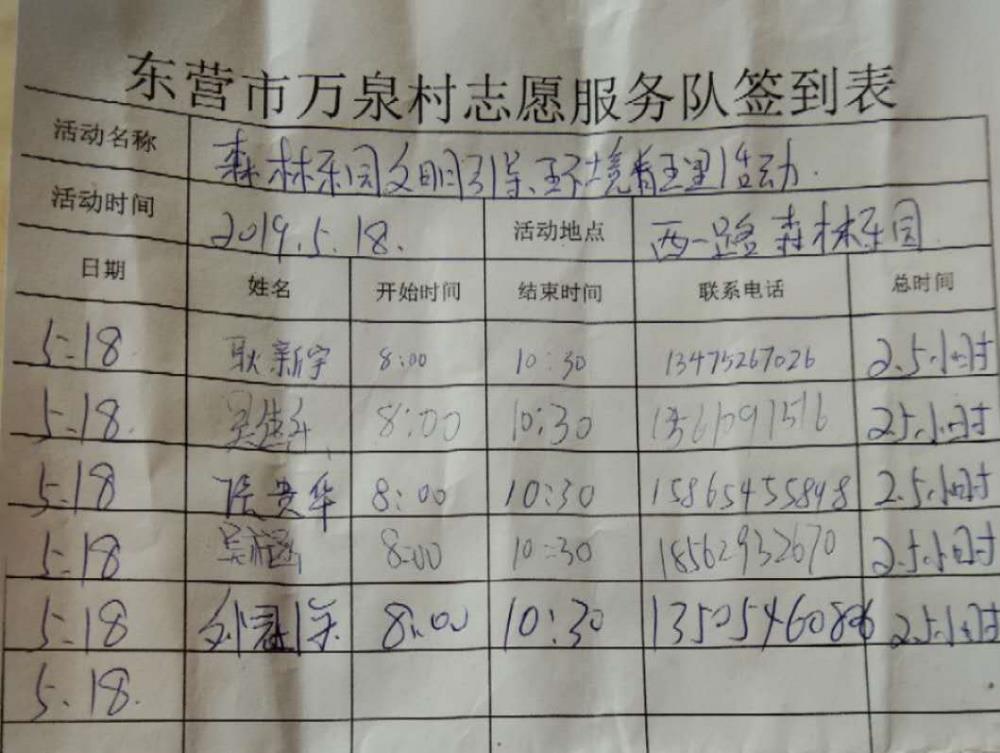 东营市万泉村志愿服务队签到表
活动名称 森林乐园文明引导、环境整理活动.
活动时间 2019.5.18. 活动地点 西一路森林乐园
日期 姓名 开始时间 结束时间 联系电话 总时间
5.18 耿新宇 8:00 10:30 13475267026 2.5小时
5.18. 8:00 10:30 2.5小时
5.18 贵华 8:00 10:30 15865455848 2.5小时
5.18 吴 8:00 10:30 18562932670 2.5小时
5.18 刘冠 8:00 10:30 13505460806 2.5小时
5.18.